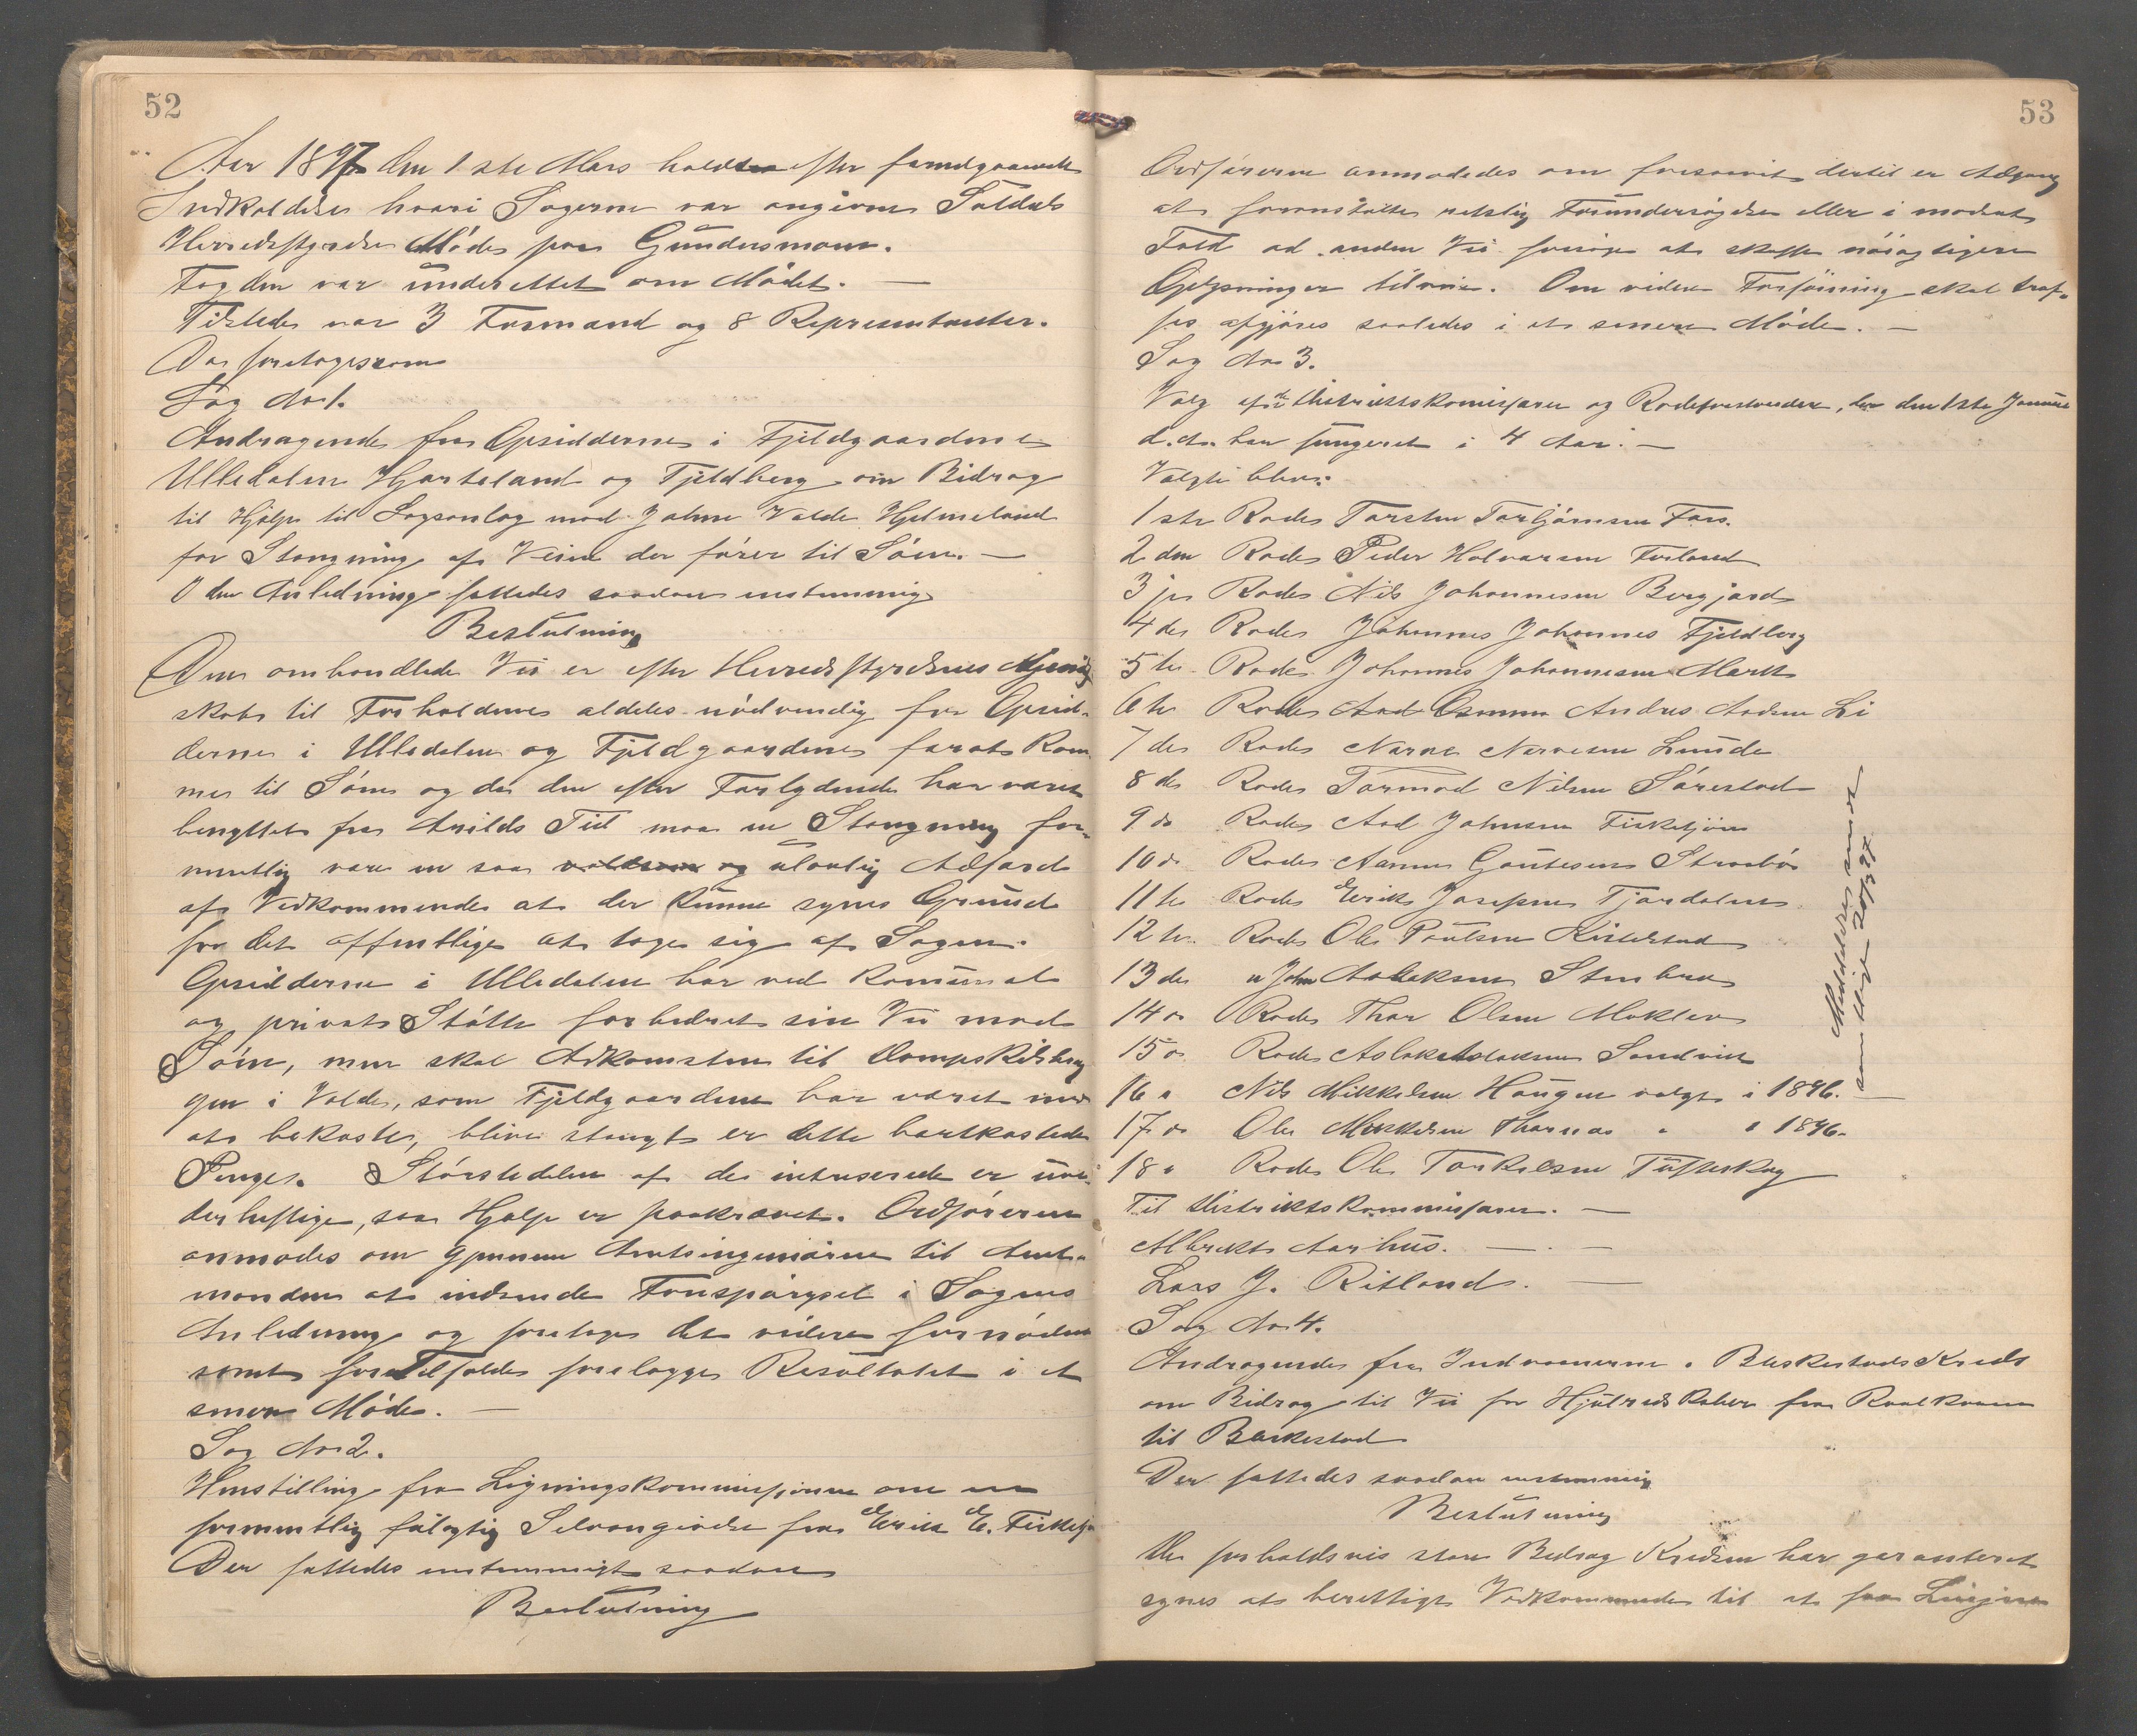 52
Aar 1897 den 1ste Mars holdtes efter forudgaaende
Indkaldelse hvori Sagerne var angivne Suldals
Herredsstyrelse Møde paa Gundersmoen.
Fogden var underettet om Mødet. —
Tilstede var 3 Formænd og 8 Repræsentanter.
Da foretoges som
Sag No 1.
Andragende fra Opsidderne i Fjeldgaardene
Ulledalen Hjorteland og Fjeldberg om Bidrag
til Hjælp til Sagsanlæg mod Johne Valde Hjelmeland
for Stængning af Veien der fører til Søen. —
I den Anledning fattedes saadan enstemmig
Beslutning
Den omhandlede Vei er efter Herredsstyrelsens Kjend-
skab til Forholdene aldeles nødvendig for Opsid-
derne i Ulledalen og Fjeldgaardene forat kom-
me til Søen og da den efter Forlydende har været
benyttet fra Arilds Tid maa en Stængning for-
mentlig være en saa voldsom og ulovlig Adfærd
af Vedkommende at der kunne synes Grund
for det offentlige at tage sig af Sagen.
Opsidderne i Ulledalen har ved komunal
og privat Støtte forbedret sin Vei mod
Søen, men skal Adkomsten til Dampskibsbryg-
gen i Valde, som Fjeldgaardene har været med
at bekoste, blive stængt er dette bortkastede
Penge. Størstedelen af de interserede er uve-
derheftige, saa Hjælp er paakrævet. Ordføreren
anmodes om gjennem Amtsingeniøren til Amt-
manden at indsende Forespørgsel i Sagens
Anledning og foretage det videre fornødne
samt foretilfælde forelægge Resultatet i et
senere Møde. —
Sag No 2.
Henstilling fra Ligningskommissionen om en
formentlig feilagtig Selvangivelse fra Eerik E. Fiskekjø
Der fattedes enstemmigt saadan
Beslutning
53
Ordføreren anmodedes om forsaavit dertil er Adgang
at foranstalte retslig Forundersøgelse eller i modsat
Fald ad anden Vei forsøge at skaffe nøiagtigere
Oplysninger tilveie. Om videre Forføining skal træf-
fes afgjøres saaledes i et senere Møde. —
Sag No 3.
Valg af de Distriktskomissærer og Rodeforstandere, der den 1ste Januar
d.A. har fungeret i 4 Aar. —
Valgte blev:
1ste Rode Torsten Torbjørnsen Foss.
2den Rode Peder Halvarsen Forland
3je Rode Nils Johannesen Bergjord
4de Rode Johannes Johannes Fjeldberg
5te Rode Johannes Johannesen Mark
6te Rode Aad Osmun Andres Aadsen Li
7de Rode Narve Narvesen Lunde
8de Rode Tormod Nilsen Sørestad
9do Rode Aad Johnsen Fiskekjøn
10do Rode Aanen Goutesen Straabø
11te Rode Eerik Josepsen Fjordalen
12te Rode Ole Poulsen Kilestad
13de " John Aslaksen Stenbru
14do Rode Thor Olsen Moklev
15do Rode Aslak Aslaksen Sandvik
16 " Nils Mikkelsen Haugen valgt i 1896.
17do Ole Mikkelsen Tharnas " " 1896.
18 " Rode Ole Torkelsen Tufteskog
Meddeleses sendt
samtlige 20/3 97
Til Distriktskommissærer. —
Albrekt Aarhus. — . —
Lars J. Ritland. —
Sag No 4.
Andragende fra Indvaanerne i Bleskestads Kreds
om Bidrag til Vei for Hjulredskaber fra Roalkvam
til Bleskestad
Der fattedes saadan enstemmig
Beslutning
Det forholdsvis store Bidrag Kredsen har garanteret
synes at berettige Vedkommende til at faa Linjen